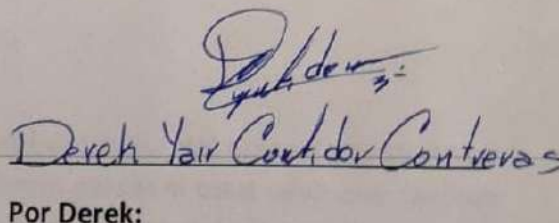 Derek Yair Contidor Contreras
Por Derek: